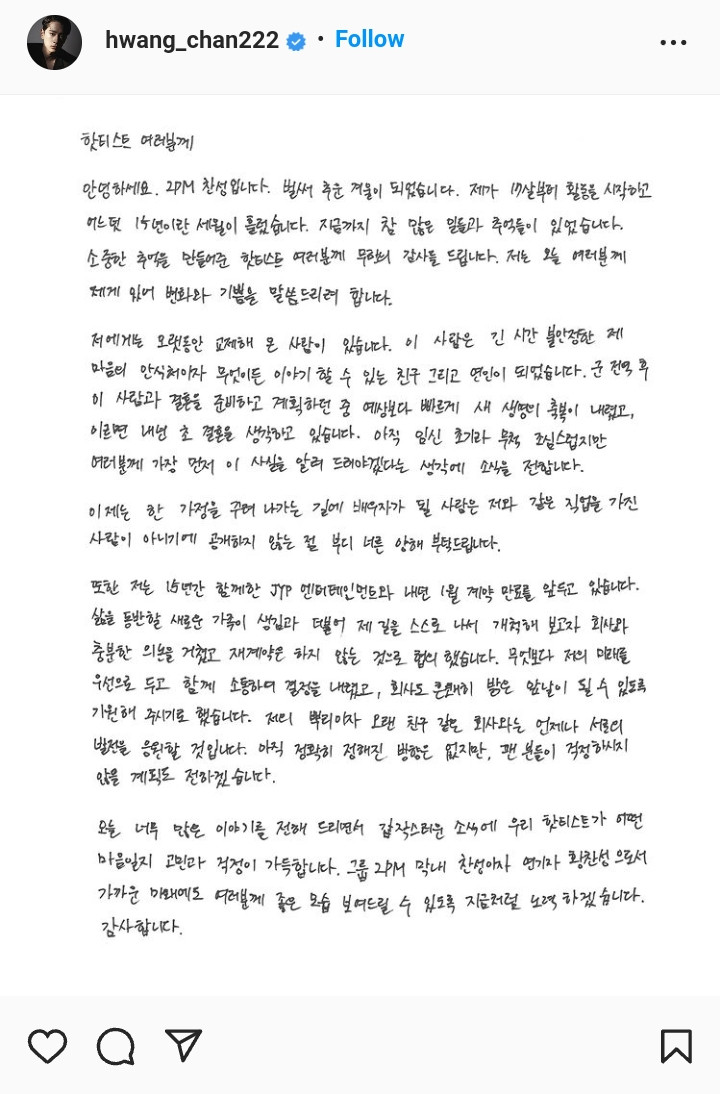 hwang_chan222 • Follow
핫티스트 여러분께
안녕하세요. 2PM 찬성입니다. 벌써 추운 겨울이 되었습니다. 제가 17살부터 활동을 시작하고
어느덧 15년이란 세월이 흘렀습니다. 지금까지 참 많은 일들과 추억들이 있었습니다.
소중한 추억을 만들어준 핫티스트 여러분께 무한의 감사를 드립니다. 저는 오늘 여러분께
제게 있어 변화와 기쁨을 말씀드리려 합니다.
저에게는 오랫동안 교제해 온 사람이 있습니다. 이 사람은 긴 시간 불안정한 제
마음의 안식처이자 무엇이든 이야기 할 수 있는 친구 그리고 연인이 되었습니다. 군 전역 후
이 사람과 결혼을 준비하고 계획하던 중 예상보다 빠르게 새 생명의 축복이 내렸고,
이르면 내년 초 결혼을 생각하고 있습니다. 아직 임신 초기라 무척 조심스럽지만
여러분께 가장 먼저 이 사실을 알려 드려야겠다는 생각에 소식을 전합니다.
이제는 한 가정을 꾸려 나가는 길에 배우자가 될 사람은 저와 같은 직업을 가진
사람이 아니기에 공개하지 않는 점 부디 너른 양해 부탁드립니다.
또한 저는 15년간 함께한 JYP 엔터테인먼트와 내년 1월 계약 만료를 앞두고 있습니다.
삶을 동반할 새로운 가족이 생김과 더불어 제 길을 스스로 나서 개척해 보고자 회사와
충분한 의논을 거쳤고 재계약은 하지 않는 것으로 협의 했습니다. 무엇보다 저의 미래를
우선으로 두고 함께 소통하며 결정을 내렸고, 회사도 흔쾌히 밝은 앞날이 될 수 있도록
기원해 주시기로 했습니다. 저의 뿌리이자 오랜 친구 같은 회사와는 언제나 서로의
발전을 응원할 것입니다. 아직 정확히 정해진 방향은 없지만, 팬 분들이 걱정하시지
않을 계획도 전하겠습니다.
오늘 너무 많은 이야기를 전해 드리면서 갑작스러운 소식에 우리 핫티스트가 어떤
마음일지 고민과 걱정이 가득합니다. 그룹 2PM 막내 찬성이자 연기자 황찬성으로서
가까운 미래에도 여러분께 좋은 모습 보여드릴 수 있도록 지금처럼 노력하겠습니다.
감사합니다.